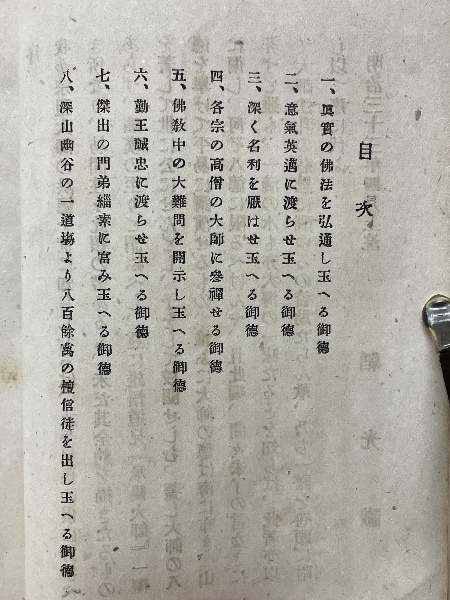 目次
一、眞實の佛法を弘通し玉へる御德
二、意氣英邁に渡らせ玉へる御德
三、深く名利を厭はせ玉へる御德
四、各宗の高僧の大師に參禪せる御德
五、佛敎中の大難問を開示し玉へる御德
六、勤王誠忠に渡らせ玉へる御德
七、傑出の門弟緇素に富み玉へる御德
八、深山幽谷の一道塲より八百餘萬の檀信徒を出し玉へる御德